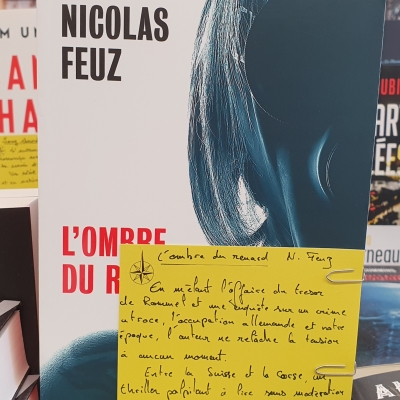 NICOLAS
FEUZ
L'OMBRE
DU R
L'ombre du renard N. Feuz
En mêlant l'affaire du tresor
de Rommel et une enquête sur un crime
atroce, l'occupation allemande et notre
époque, l'auteur ne relache la tension
à aucun moment.
Entre la Suisse et la Corse, un
thriller palpitant à lire sans modération
M UN
HA
UBI
AR
ÉES
rneau